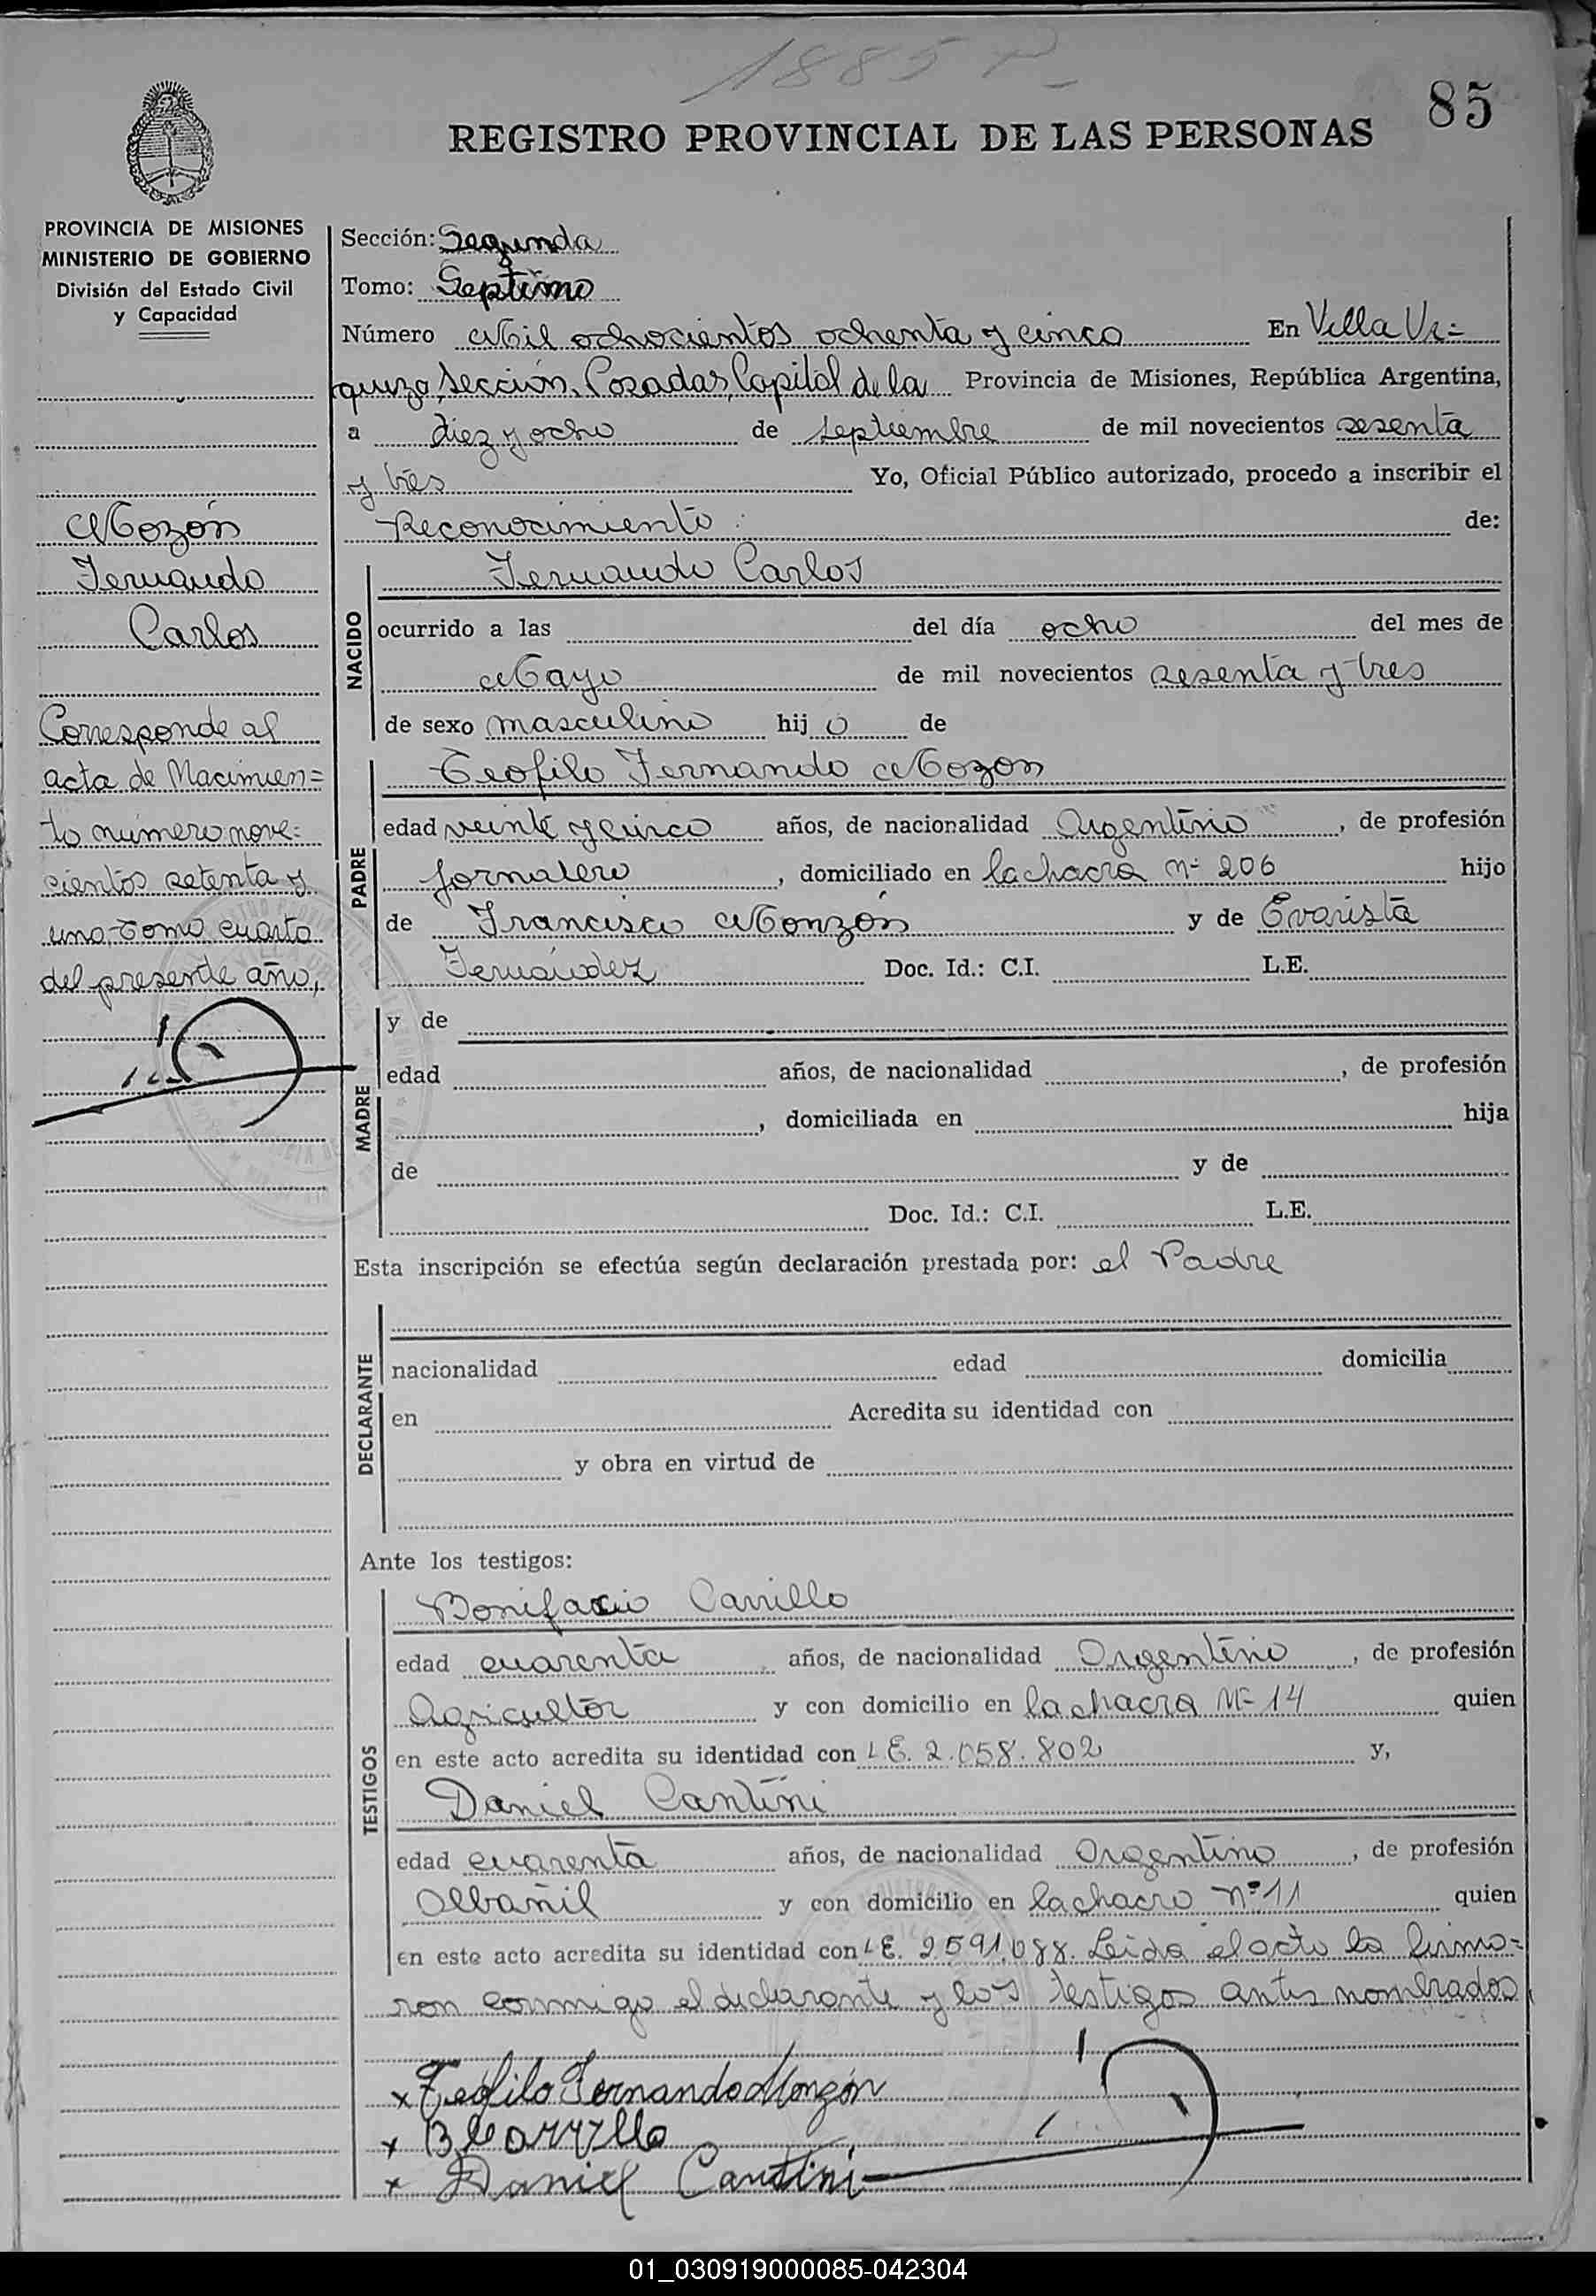 1885
85
REGISTRO PROVINCIAL DE LAS PERSONAS
PROVINCIA DE MISIONES
MINISTERIO DE GOBIERNO
División del Estado Civil
y Capacidad
Mozón
Fernando
Carlos
Corresponde al
acta de Nacimien=
to número nove=
cientos setenta y
uno, tomo cuarto
del presente año,
Sección: Segunda
Tomo: Septimo
Número Mil ochocientos ochenta y cinco En Villa Ur=
quiza, sección, Posadas, Capital de la Provincia de Misiones, República Argentina,
a diez y ocho de septiembre de mil novecientos sesenta
y tres Yo, Oficial Público autorizado, procedo a inscribir el
Reconocimiento: de:
NACIDO
Fernando Carlos
ocurrido a las del día ocho del mes de
Mayo de mil novecientos sesenta y tres
de sexo masculino hijo de
PADRE
Teofilo Fernando Mozon
edad veinte y cinco años, de nacionalidad Argentino, de profesión
jornalero, domiciliado en la chacra Nº 206 hijo
de Francisco Monzón y de Evarista
Fernández Doc. Id.: C.I. L.E.
MADRE
y de
edad años, de nacionalidad , de profesión
, domiciliada en hija
de y de
Doc. Id.: C.I. L.E.
Esta inscripción se efectúa según declaración prestada por: el Padre
DECLARANTE
nacionalidad edad domicilia
en Acredita su identidad con
y obra en virtud de
Ante los testigos:
TESTIGOS
Bonifacio Carrillo
edad cuarenta años, de nacionalidad Argentino, de profesión
Agricultor y con domicilio en la chacra Nº 14 quien
en este acto acredita su identidad con L E. 2.058.802 y,
Daniel Cantini
edad cuarenta años, de nacionalidad Argentino, de profesión
Albañil y con domicilio en la chacra Nº 11 quien
en este acto acredita su identidad con L E. 2.591.088. Leida el acta la firma=
ron conmigo el declarante y los testigos antes nombrados
x Teófilo Fernando Monzón
x B Carryllo
x Daniel Cantini
01_030919000085-042304